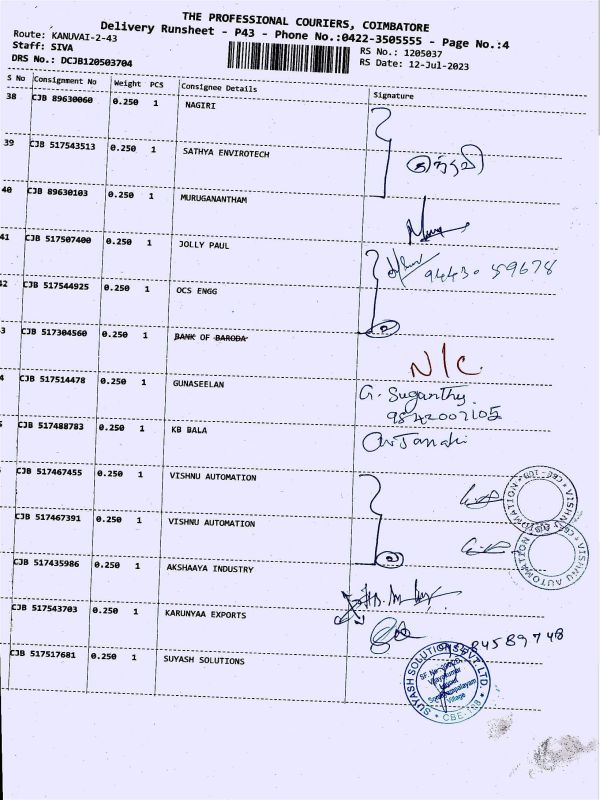 THE PROFESSIONAL COURIERS, COIMBATORE
Delivery Runsheet - P43 - Phone No.:0422-3505555 - Page No.:4
Route: KANUVAI-2-43
Staff: SIVA
DRS No.: DCJB120503704
RS No.: 1205037
RS Date: 12-Jul-2023
S No Consignment No Weight PCS Consignee Details Signature
38 CJB 89630060 0.250 1 NAGIRI
39 CJB 517543513 0.250 1 SATHYA ENVIROTECH
40 CJB 89630103 0.250 1 MURUGANANTHAM
41 CJB 517507400 0.250 1 JOLLY PAUL 94430 59678
42 CJB 517544925 0.250 1 OCS ENGG
3 CJB 517304560 0.250 1 BANK OF BARODA N/C
4 CJB 517514478 0.250 1 GUNASEELAN G. Suganthy
9842007105
CJB 517488783 0.250 1 KB BALA Janaki
CJB 517467455 0.250 1 VISHNU AUTOMATION
VISHNU AUTOMATION
CJB 517467391 0.250 1 VISHNU AUTOMATION
VISHNU AUTOMATION
CJB 517435986 0.250 1 AKSHAAYA INDUSTRY
CJB 517543703 0.250 1 KARUNYAA EXPORTS
CJB 517517681 0.250 1 SUYASH SOLUTIONS
SUYASH SOLUTIONS PVT. LTD.
Village